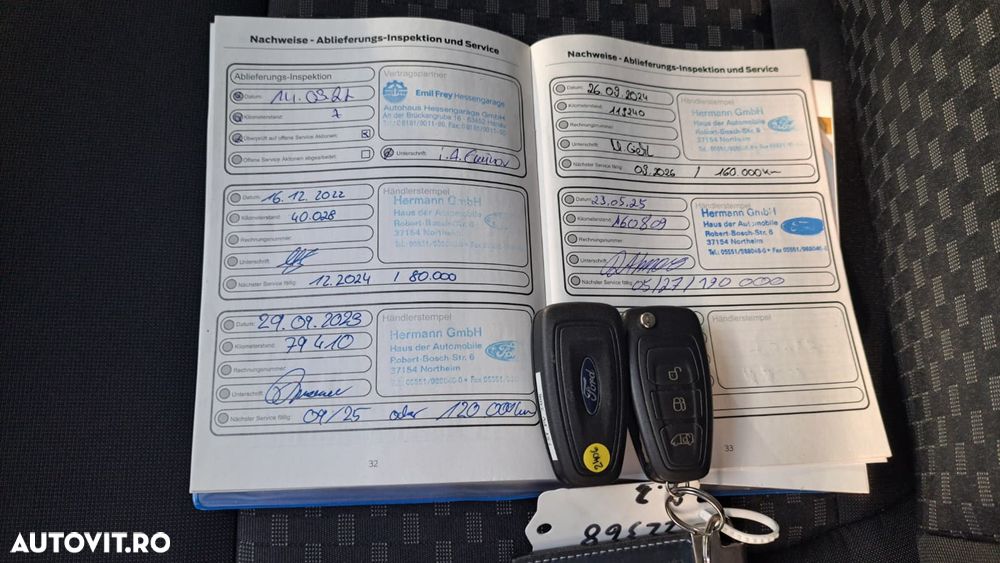 Nachweise - Ablieferungs-Inspektion und Service
Ablieferungs-Inspektion
Datum: 14.09.21
Kilometerstand: 7
Überprüft auf offene Service Aktionen:
Offene Service Aktionen abgearbeitet:
Vertragspartner
Emil Frey Hessengarage
Autohaus Hessengarage GmbH
An der Brückengrube 16 · 63452 Hanau
Unterschrift:
Datum: 16.12.2022
Kilometerstand: 40.028
Rechnungsnummer:
Unterschrift:
Nächster Service fällig: 12.2024 / 80.000
Händlerstempel
Hermann GmbH
Haus der Automobile
Robert-Bosch-Str. 6
37154 Northeim
Datum: 29.09.2023
Kilometerstand: 79410
Rechnungsnummer:
Unterschrift:
Nächster Service fällig: 09/25 oder 120 000km
Händlerstempel
Hermann GmbH
Haus der Automobile
Robert-Bosch-Str. 6
37154 Northeim
Tel. 05551/988046-0 • Fax 05551/988
Ford
32
Nachweise - Ablieferungs-Inspektion und Service
Datum: 26.09.2024
Kilometerstand: 119240
Rechnungsnummer:
Unterschrift:
Nächster Service fällig: 09.2026 / 160.000km
Händlerstempel
Hermann GmbH
Haus der Automobile
Robert-Bosch-Str. 6
37154 Northeim
Datum: 23.05.25
Kilometerstand: 160809
Rechnungsnummer:
Unterschrift:
Nächster Service fällig: 05/27/190 000
Händlerstempel
Hermann GmbH
Haus der Automobile
Robert-Bosch-Str. 6
37154 Northeim
Tel.: 05551/988046-0 • Fax 05551/988046-
Händlerstempel
33
Ford
2406
22368
AUTOVIT.RO